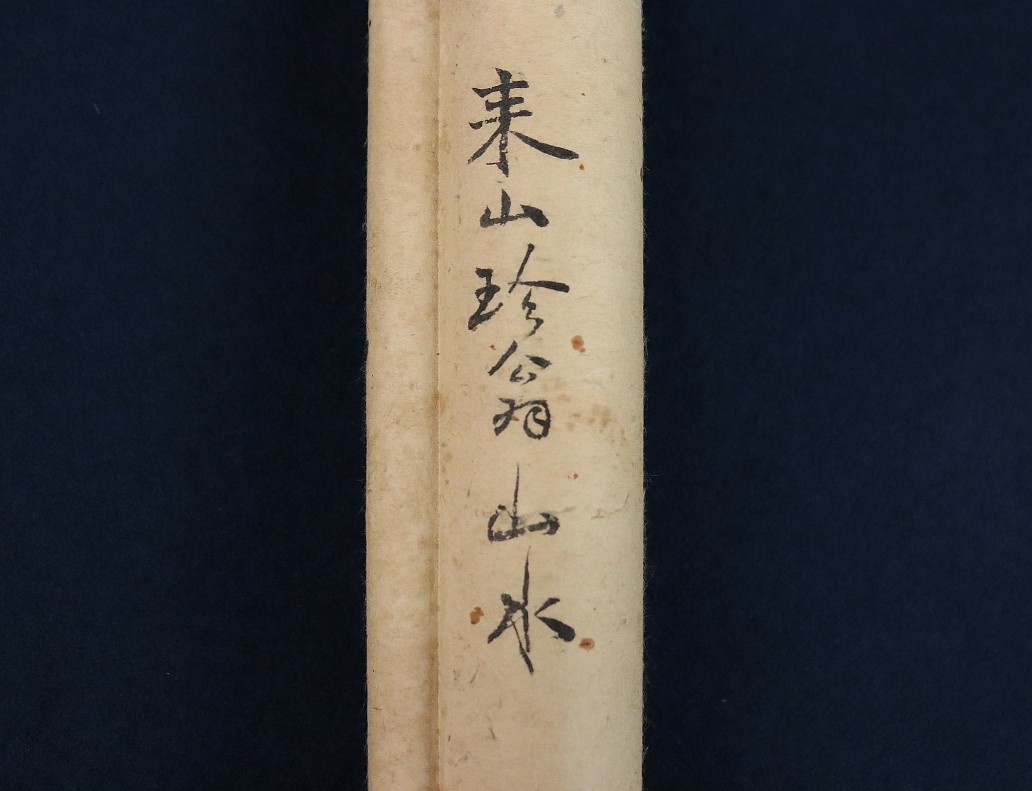 来山珍翁山水